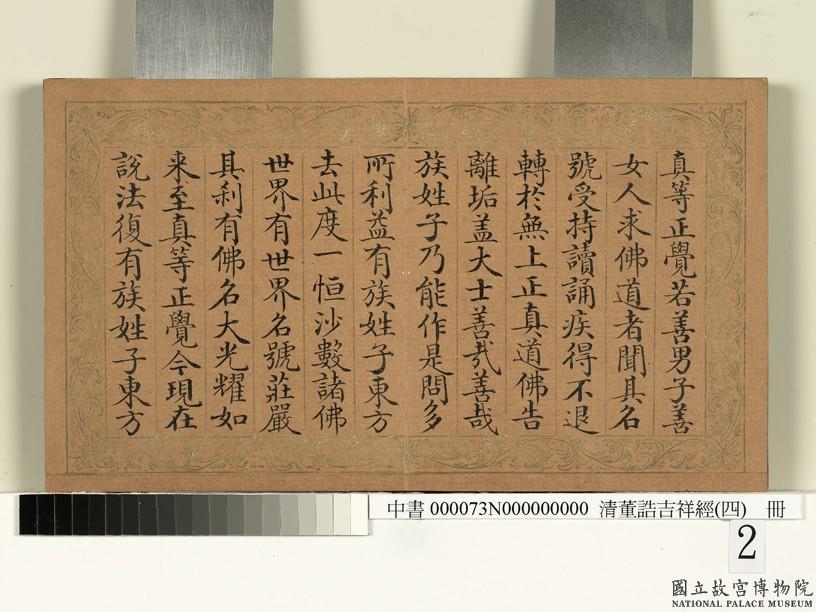 真等正覺若善男子善
女人求佛道者聞其名
號受持讀誦疾得不退
轉於無上正真道佛告
離垢盖大士善哉善哉
族姓子乃能作是問多
所利益有族姓子東方
去此度一恒沙數諸佛
世界有世界名號莊嚴
其刹有佛名大光耀如
来至真等正覺今現在
說法復有族姓子東方
中書 000073N000000000 清董誥吉祥經(四) 冊
2
國立故宮博物院
NATIONAL PALACE MUSEUM